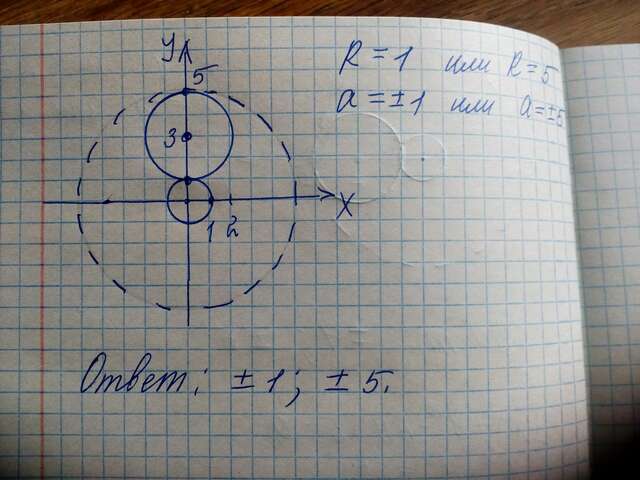 R = 1 или R = 5
a = ±1 или a = ±5
y
5
3
1 2
X
Ответ: ±1; ±5.